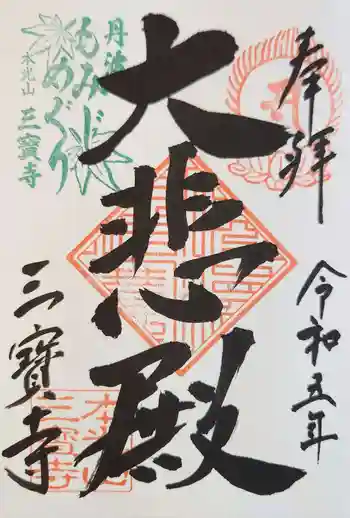 奉拝
令和五年
大悲殿
丹波
もみじ
めぐり
木光山 三寶寺
三寳寺